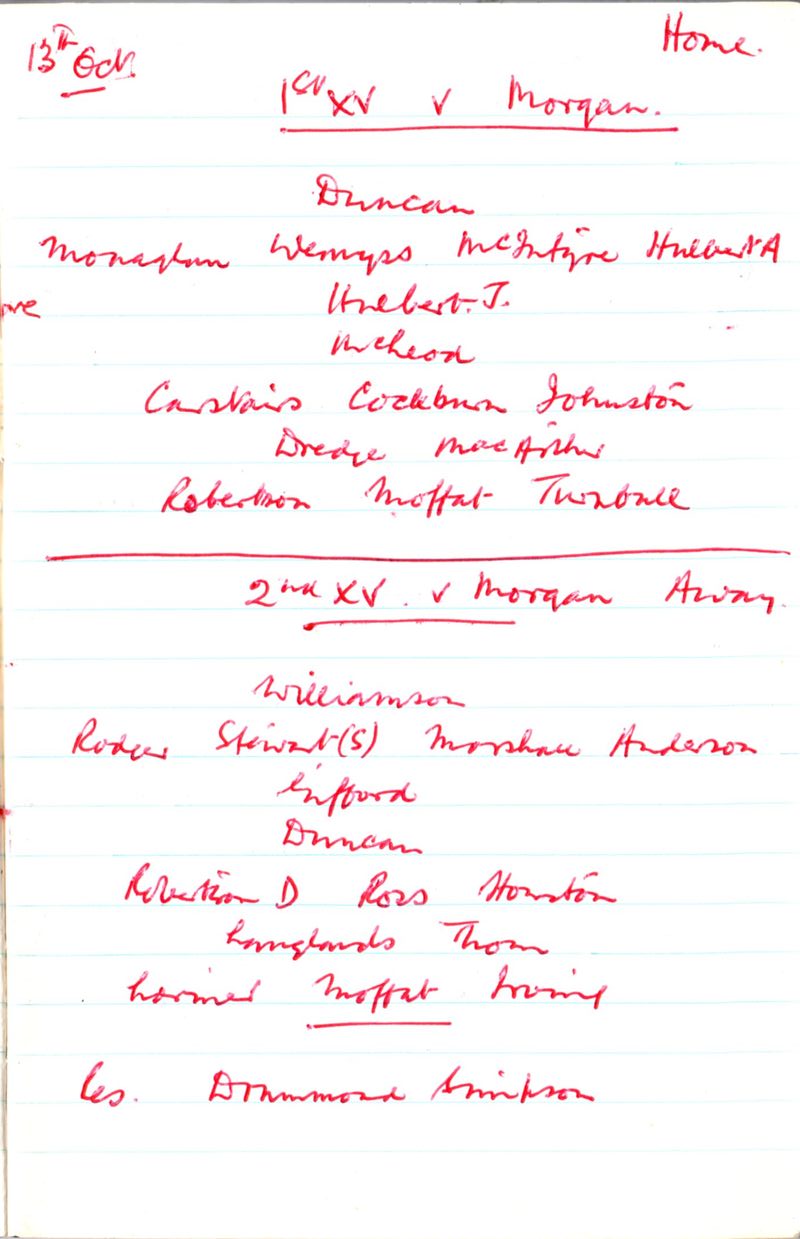 13th Oct. Home.
1st XV v Morgan.
Duncan
Monaghan Wemyss McIntyre Hulbert A
Hulbert. J.
McLeod
Carstairs Cockburn Johnston
Dredge MacArthur
Robertson Moffat Turnbull
2nd XV. v Morgan Away.
Williamson
Rodger Stewart (S) Marshall Anderson
Gifford
Duncan
Robertson D Ross Houston
Langlands Thom
Lorimer Moffat Irving
Res. Drummond Simpson